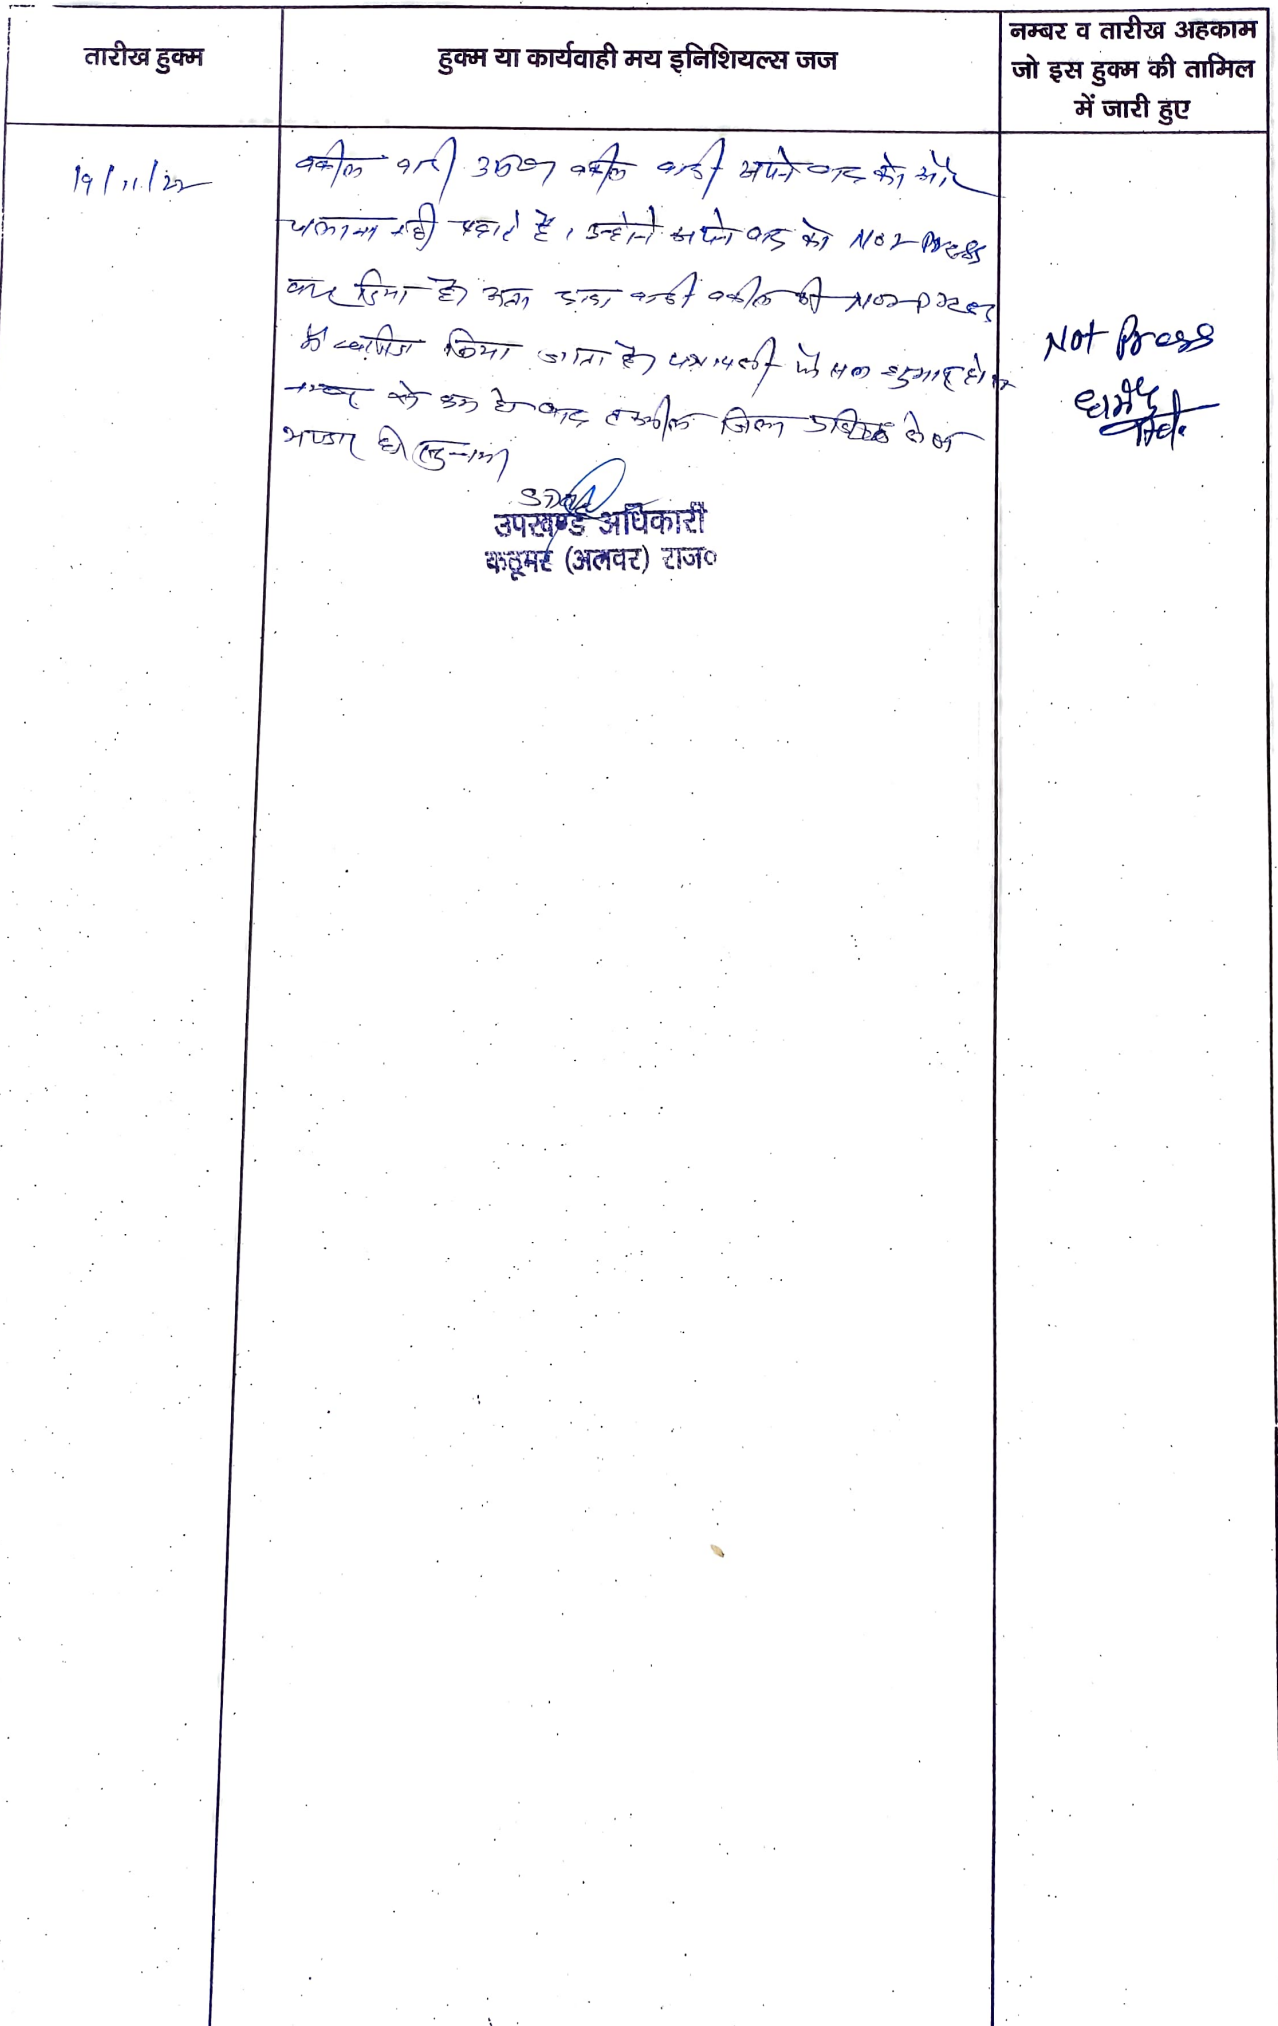 तारीख हुक्म
हुक्म या कार्यवाही मय इनिशियल्स जज
नम्बर व तारीख अहकाम
जो इस हुक्म की तामिल
में जारी हुए
19/11/22
वकील वादी उप० वकील वादी अपने वाद को और
चलाना नही चहाते है। उन्होने अपने वाद को Not Press
कर दिया है। अतः वादी वकील की Not Press
में खारिज किया जाता है। पत्रावली फैसल शुमार होकर
नम्बर से कम हो बाद तकमील जिला अभिलेख
भण्डार हो।
Not Press
उपखण्ड अधिकारी
कठूमर (अलवर) राज०